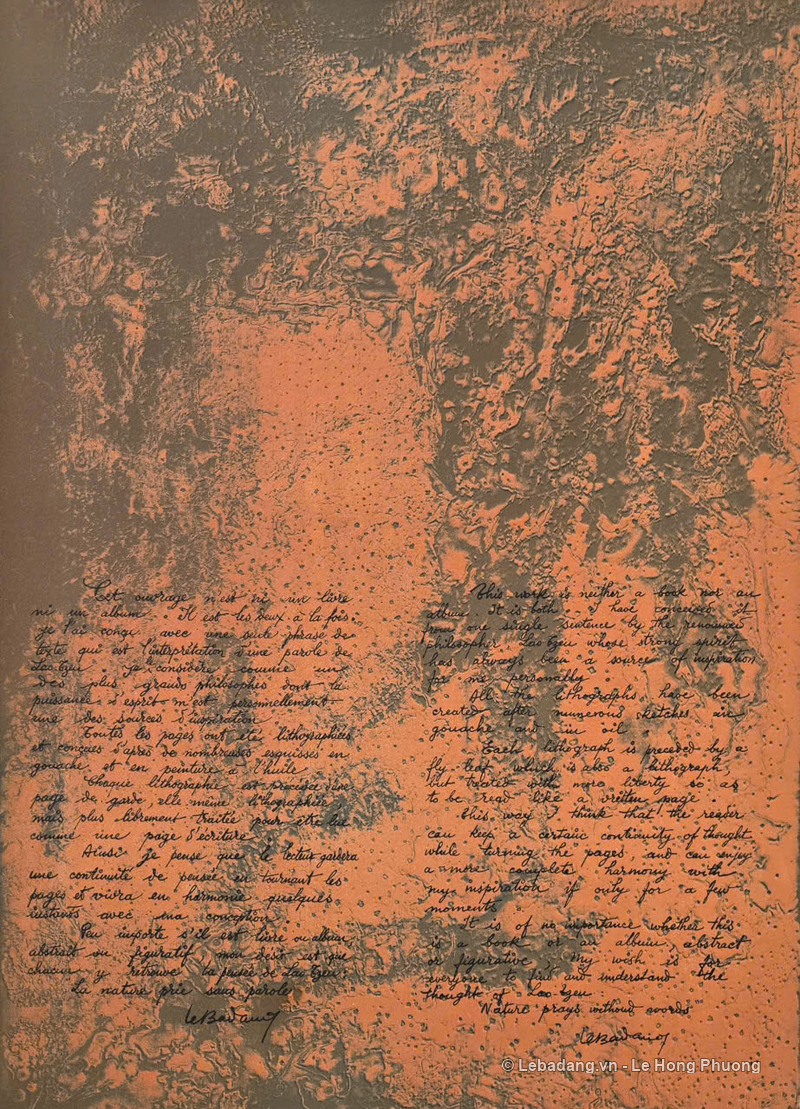 Cet ouvrage n'est ni un livre
ni un album. Il est les deux à la fois.
je l'ai conçu avec une seule phrase de
texte qui est l'interprétation d'une parole de
Lao-tzeu. je considère comme un
des plus grands philosophes dont la
puissance d'esprit m'est personnellement
une des sources d'inspiration
Toutes les pages ont été lithographiées
et conçues d'après de nombreuses esquisses en
gouache et en peinture à l'huile
Chaque lithographie est précédée d'une
page de garde, elle même lithographiée,
mais plus librement traitée pour être lue
comme une page d'écriture
Ainsi je pense que le lecteur gardera
une continuité de pensée en tournant les
pages et vivra en harmonie quelques
instants avec ma conception.
Peu importe s'il est livre ou album,
abstrait ou figuratif, mon désir est que
chacun y retrouve la pensée de Lao-tzeu:
La nature prie sans parole
LeBadang
This work is neither a book nor an
album. It is both. I have conceived it
from one single sentence by the renowned
philosopher Lao-tzeu whose strong spirit
has always been a source of inspiration
for me personally.
All the lithographs have been
created after numerous sketches in
gouache and in oil.
Each lithograph is preceded by a
fly-leaf which is also a lithograph,
but treated with more liberty so as
to be read like a written page.
This way I think that the reader
can keep a certain continuity of thought
while turning the pages, and can enjoy
a more complete harmony with
my inspiration if only for a few
moments.
It is of no importance whether this
is a book or an album, abstract
or figurative, my wish is for
everyone to find and understand the
thought of Lao-tzeu.
"Nature prays without words"
LeBadang
© Lebadang.vn - Le Hong Phuong